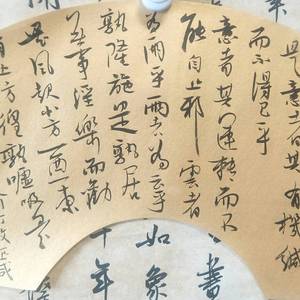 是意者其有機緘
而不得已乎
意者其運轉而不
能自止邪雲者
為雨乎雨者為云乎
孰隆施是孰居
無事淫樂而勸
是風起北方一西一東
有上彷徨孰噓吸是
故巫咸
書
如象
年